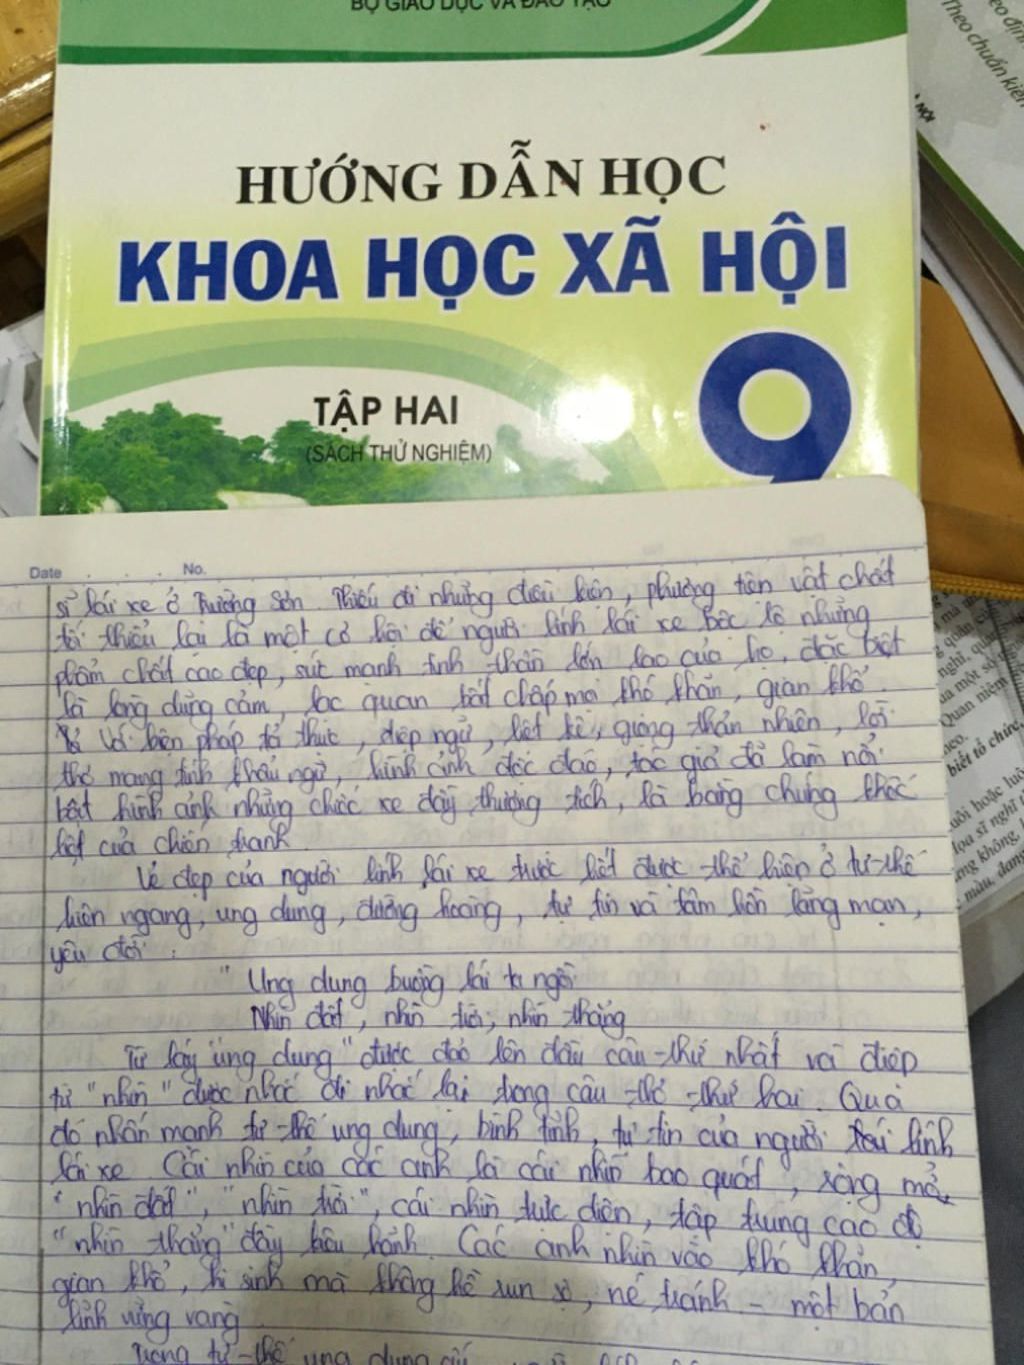 BỘ GIÁO DỤC VÀ ĐÀO TẠO
HƯỚNG DẪN HỌC
KHOA HỌC XÃ HỘI
9
TẬP HAI
(SÁCH THỬ NGHIỆM)
Theo chuẩn kiến
biết tổ chức,
Date . . . . No.
sĩ lái xe ở Trường Sơn. Thiếu đi những điều kiện, phương tiện vật chất
tối thiểu lại là một cơ hội để người lính lái xe bộc lộ những
phẩm chất cao đẹp, sức mạnh tinh thần lớn lao của họ, đặc biệt
là lòng dũng cảm, lạc quan bất chấp mọi khó khăn, gian khổ.
Với biện pháp tả thực, điệp ngữ, liệt kê, giọng thản nhiên, lời
thơ mang tính khẩu ngữ, hình ảnh độc đáo, tác giả đã làm nổi
bật hình ảnh những chiếc xe đầy thương tích, là bằng chứng khốc
liệt của chiến tranh
Vẻ đẹp của người lính lái xe trước hết được thể hiện ở tư thế
hiên ngang, ung dung, đường hoàng, tự tin và tâm hồn lãng mạn,
yêu đời :
" Ung dung buồng lái ta ngồi
Nhìn đất, nhìn trời, nhìn thẳng
Từ láy "ung dung" được đảo lên đầu câu thứ nhất và điệp
từ "nhìn" được nhắc đi nhắc lại trong câu thơ thứ hai. Qua
đó nhấn mạnh tư thế ung dung, bình tĩnh, tự tin của người lính
lái xe. Cái nhìn của các anh là cái nhìn bao quát, rộng mở
"nhìn đất", "nhìn trời", cái nhìn trực diện, tập trung cao độ
"nhìn thẳng" đầy kiêu hãnh. Các anh nhìn vào khó khăn,
gian khổ, hi sinh mà không hề run sợ, né tránh - một bản
lĩnh vững vàng
Trong tư thế ung dung